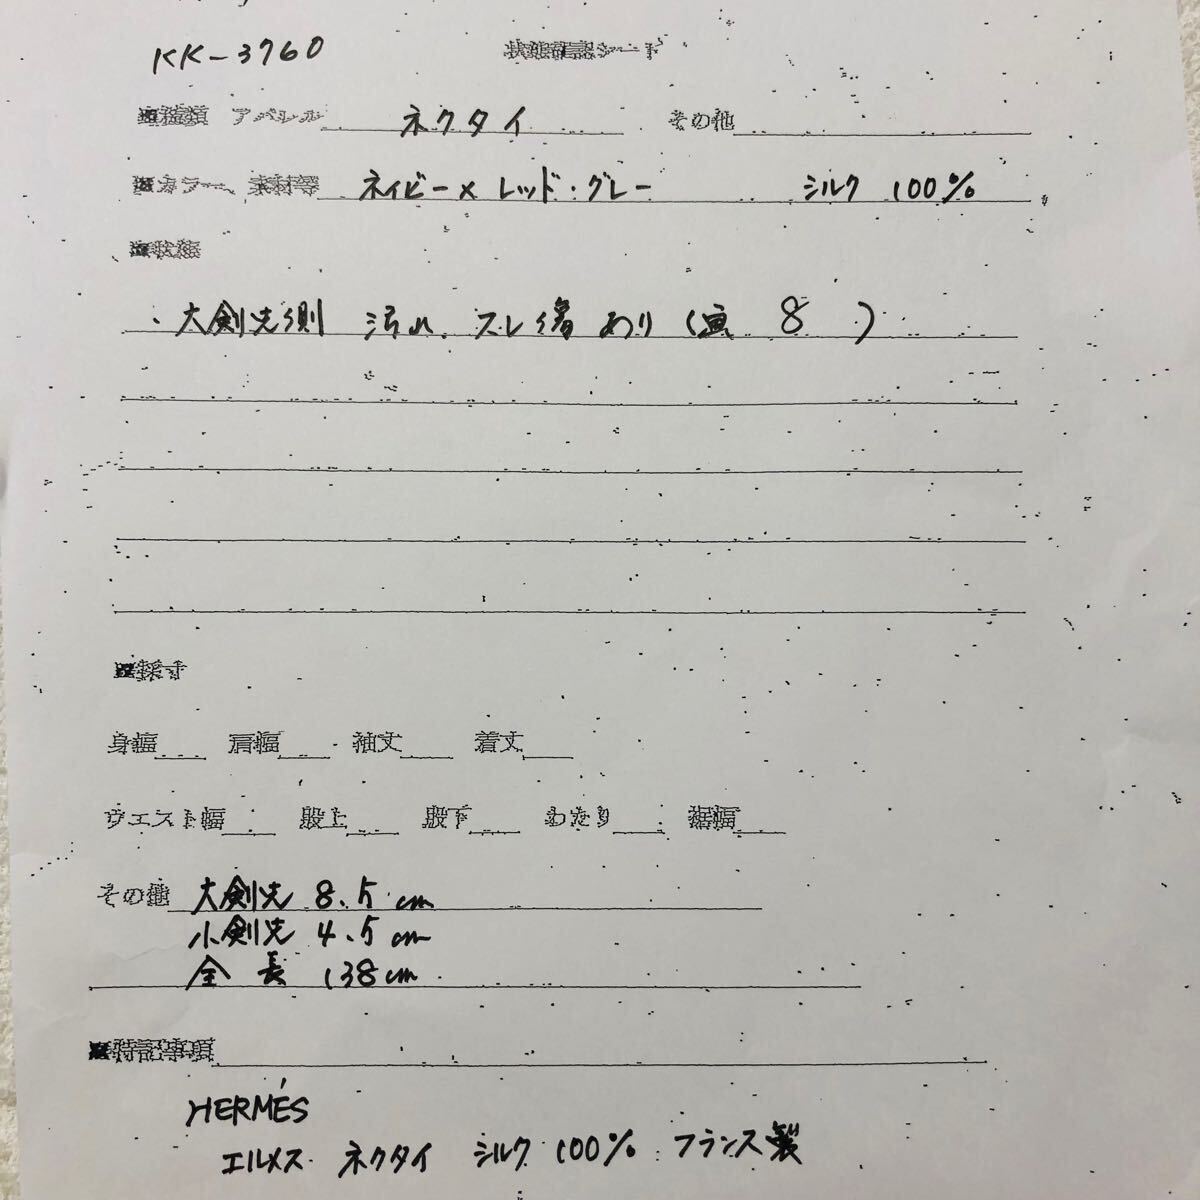 KK-3760
状態確認シート
■種類 アパレル ネクタイ その他
■カラー、素材等 ネイビー×レッド・グレー シルク 100%
■状態
・大剣先側 汚れ、スレ傷あり(画 8 )
■採寸
身幅 肩幅 袖丈 着丈
ウエスト幅 股上 股下 わたり 裾幅
その他 大剣先 8.5cm
小剣先 4.5cm
全長 138cm
■特記事項
HERMÉS
エルメス ネクタイ シルク 100% フランス製